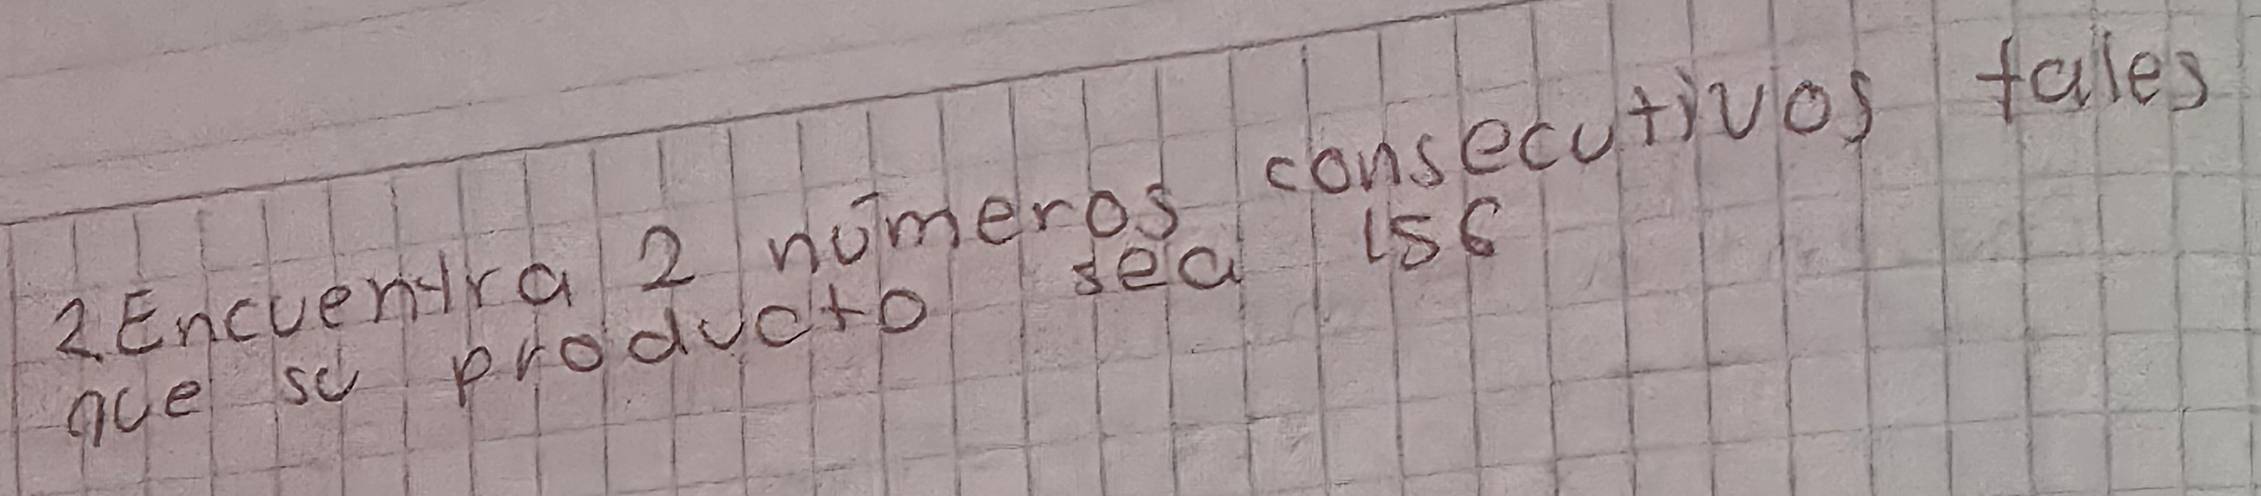 2. Encuentra 2 números consecutivos tales
que su producto sea 156